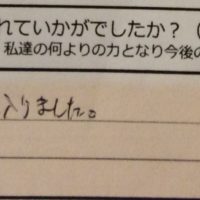 れていかがでしたか？（
私達の何よりの力となり今後の
入りました。